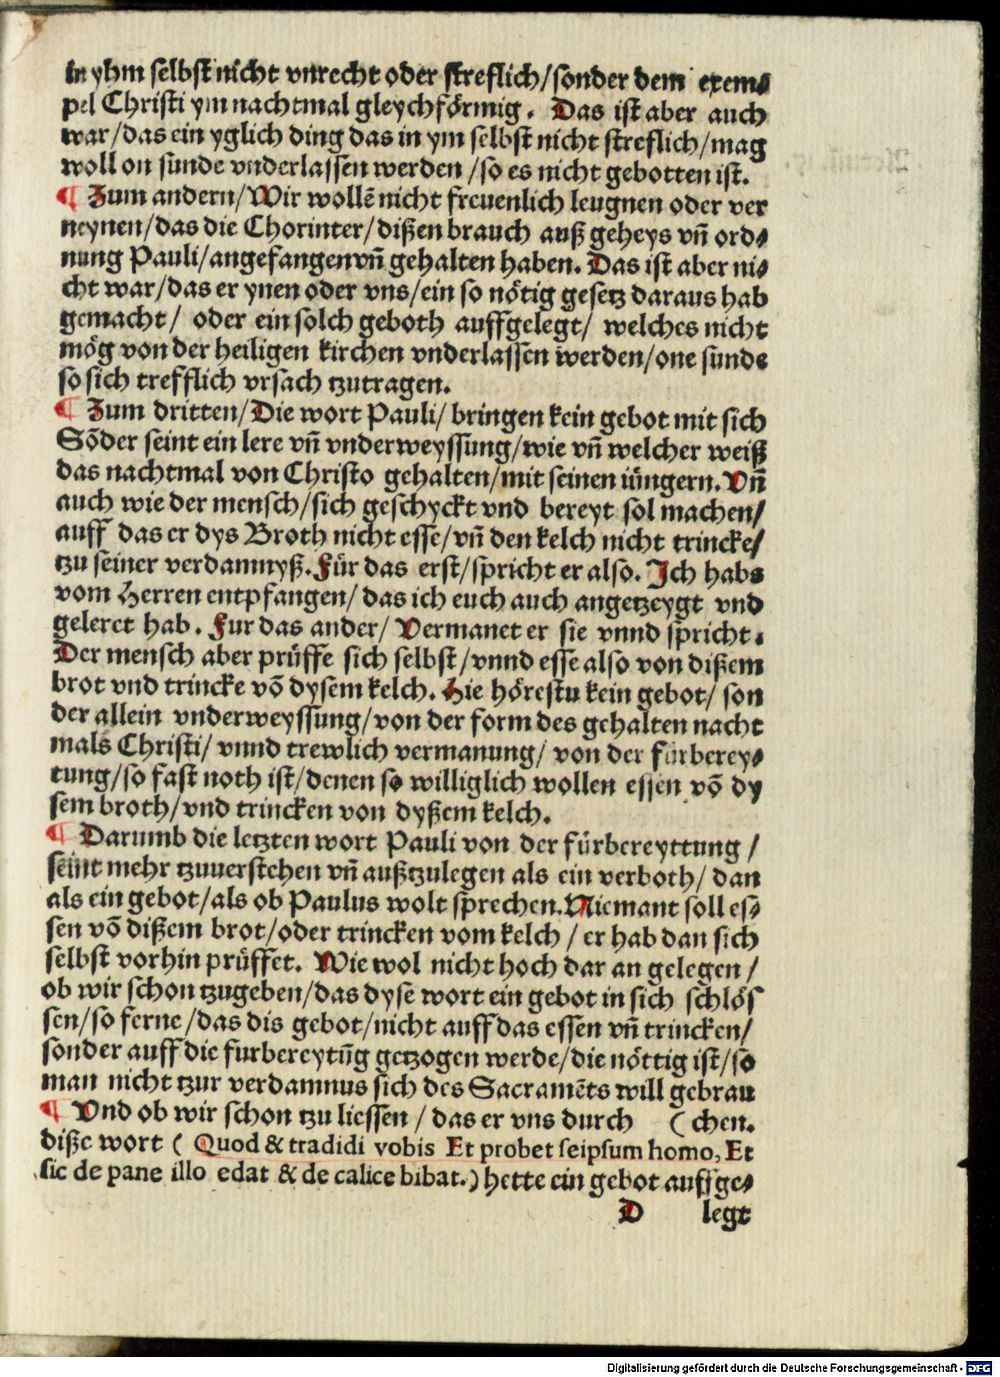 in yhm selbst nicht vnrecht oder streflich/sonder dem exem⸗
pel Christi ym nachtmal gleychförmig. Das ist aber auch
war/das ein yglich ding das in ym selbst nicht streflich/mag
woll on sunde vnderlassen werden/so es nicht gebotten ist.
¶ Zum andern/Wir wollē nicht freuenlich leugnen oder ver
neynen/das die Chorinter/dißen brauch auß geheys vn̄ ord⸗
nung Pauli/angefangen vn̄ gehalten haben. Das ist aber ni⸗
cht war/das er ynen oder vns/ein so nötig gesetz daraus hab
gemacht/ oder ein solch geboth auffgelegt/ welches nicht
mög von der heiligen kirchen vnderlassen werden/one sunde
so sich trefflich vrsach tzutragen.
¶ Zum dritten/Die wort Pauli/bringen kein gebot mit sich
Sōder seint ein lere vn̄ vnderweyssung/wie vn̄ welcher weiß
das nachtmal von Christo gehalten/mit seinen iüngern. Vn̄
auch wie der mensch/sich geschyckt vnd bereyt sol machen/
auff das er dys Broth nicht esse/vn̄ den kelch nicht trincke/
tzu seiner verdamnyß. Für das erst/spricht er also. Ich habs
vom Herren entpfangen/das ich euch auch angetzeygt vnd
geleret hab. Fur das ander/ Vermanet er sie vnnd spricht.
Der mensch aber prüffe sich selbst/vnnd esse also von dißem
brot vnd trincke vō dysem kelch. Hie hörestu kein gebot/ son
der allein vnderweyssung/von der form des gehalten nacht
mals Christi/ vnnd trewlich vermanung/ von der fürberey⸗
tung/so fast noth ist/denen so williglich wollen essen vō dy
sem broth/vnd trincken von dyßem kelch.
¶ Darumb die letzten wort Pauli von der fürbereyttung/
seint mehr tzuuerstehen vn̄ außtzulegen als ein verboth/ dan
als ein gebot/als ob Paulus wolt sprechen. Niemant soll es⸗
sen vō dißem brot/oder trincken vom kelch/ er hab dan sich
selbst vorhin prüffet. Wie wol nicht hoch dar an gelegen/
ob wir schon tzugeben/das dyse wort ein gebot in sich schlös
sen/so ferne/das dis gebot/nicht auff das essen vn̄ trincken/
sonder auff die furbereytūg getzogen werde/die nöttig ist/so
man nicht tzur verdamnus sich des Sacramēts will gebrau
¶ Vnd ob wir schon tzu liessen/ das er vns durch (chen.
diße wort ( Quod & tradidi vobis Et probet seipsum homo, Et
sic de pane illo edat & de calice bibat.) hette ein gebot auffge⸗
D legt
Digitalisierung gefördert durch die Deutsche Forschungsgemeinschaft - DFG